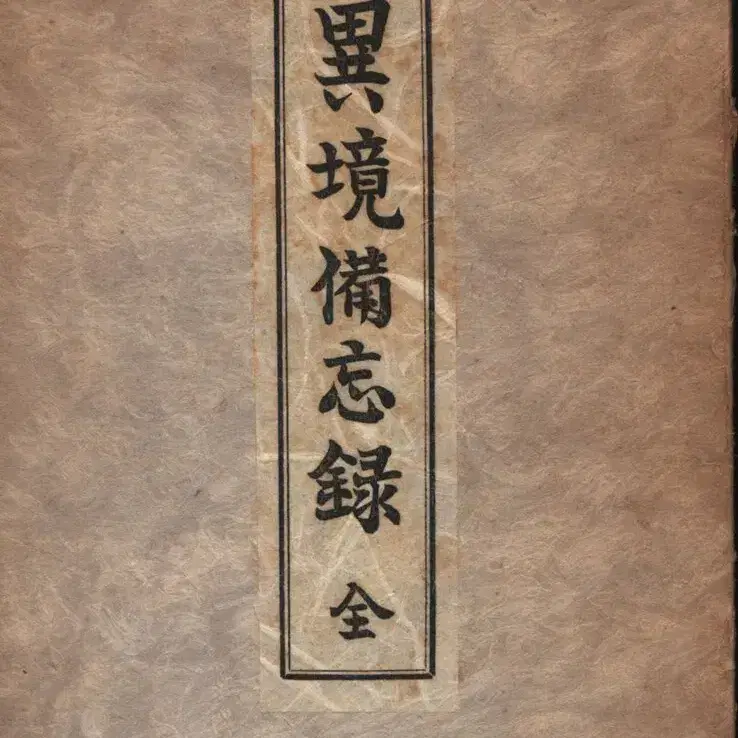 異境備忘録
全